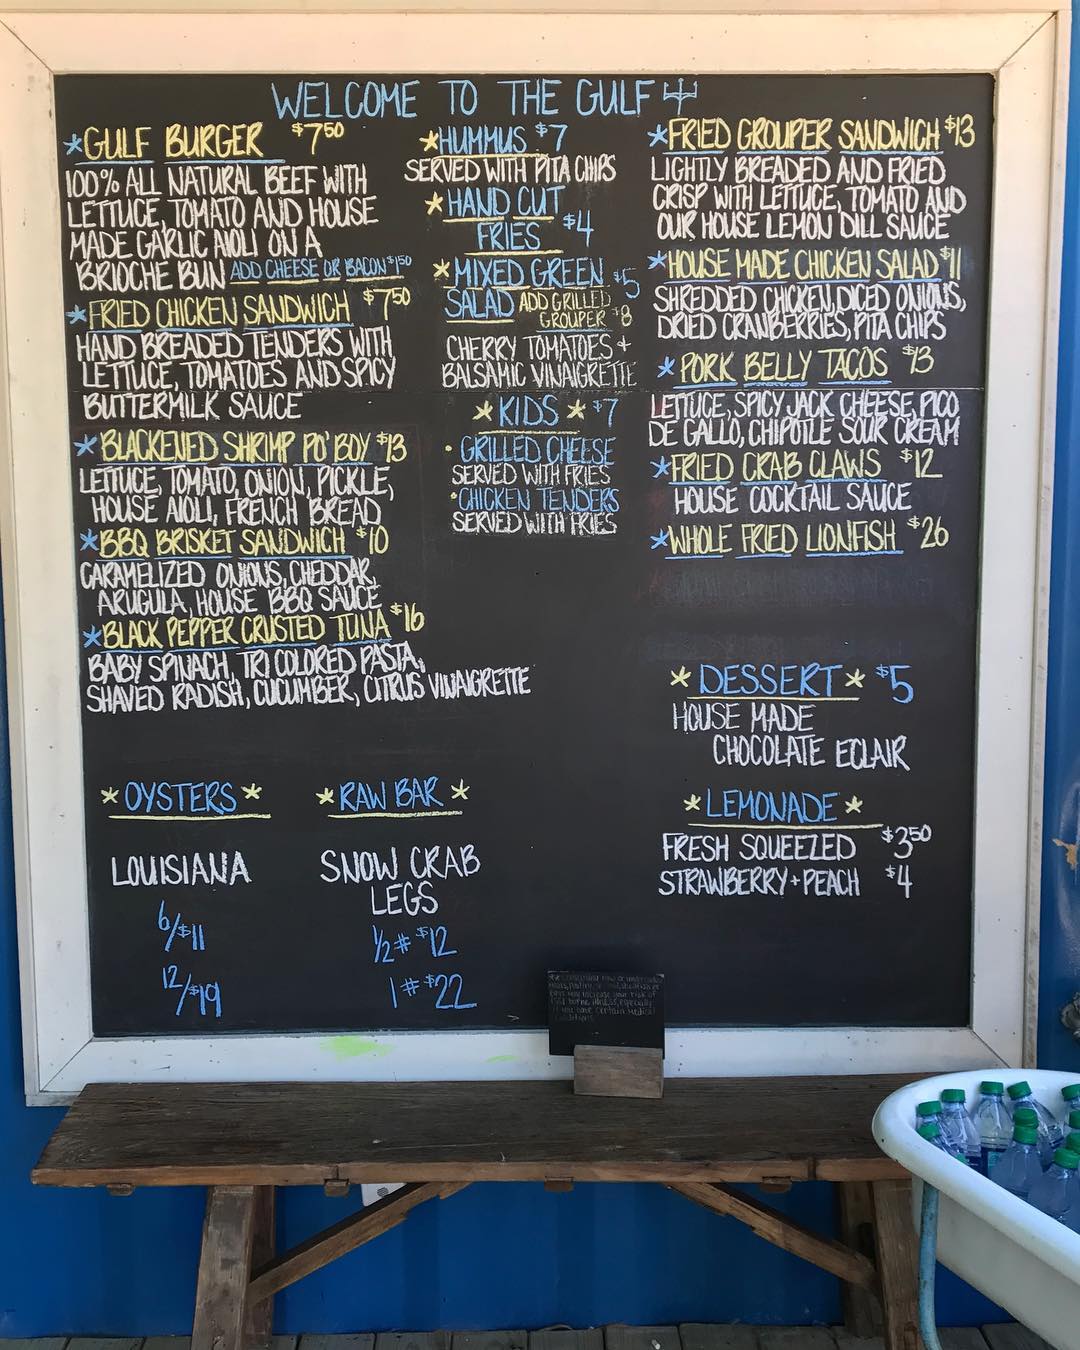 WELCOME TO THE GULF
*GULF BURGER $7⁵⁰
100% ALL NATURAL BEEF WITH
LETTUCE, TOMATO AND HOUSE
MADE GARLIC AIOLI ON A
BRIOCHE BUN ADD CHEESE OR BACON $1⁵⁰
*FRIED CHICKEN SANDWICH $7⁵⁰
HAND BREADED TENDERS WITH
LETTUCE, TOMATOES AND SPICY
BUTTERMILK SAUCE
*BLACKENED SHRIMP PO' BOY $13
LETTUCE, TOMATO, ONION, PICKLE,
HOUSE AIOLI, FRENCH BREAD
*BBQ BRISKET SANDWICH $10
CARAMELIZED ONIONS, CHEDDAR,
ARUGULA, HOUSE BBQ SAUCE
*BLACK PEPPER CRUSTED TUNA $16
BABY SPINACH, TRI COLORED PASTA,
SHAVED RADISH, CUCUMBER, CITRUS VINAIGRETTE
*HUMMUS $7
SERVED WITH PITA CHIPS
*HAND CUT
FRIES $4
*MIXED GREEN $5
SALAD ADD GRILLED
GROUPER $8
CHERRY TOMATOES +
BALSAMIC VINAIGRETTE
*KIDS* $7
• GRILLED CHEESE
SERVED WITH FRIES
• CHICKEN TENDERS
SERVED WITH FRIES
*FRIED GROUPER SANDWICH $13
LIGHTLY BREADED AND FRIED
CRISP WITH LETTUCE, TOMATO AND
OUR HOUSE LEMON DILL SAUCE
*HOUSE MADE CHICKEN SALAD $11
SHREDDED CHICKEN, DICED ONIONS,
DRIED CRANBERRIES, PITA CHIPS
*PORK BELLY TACOS $13
LETTUCE, SPICY JACK CHEESE, PICO
DE GALLO, CHIPOTLE SOUR CREAM
*FRIED CRAB CLAWS $12
HOUSE COCKTAIL SAUCE
*WHOLE FRIED LIONFISH $26
*DESSERT* $5
HOUSE MADE
CHOCOLATE ECLAIR
*LEMONADE*
FRESH SQUEEZED $3⁵⁰
STRAWBERRY + PEACH $4
*OYSTERS*
LOUISIANA
6/$11
12/$19
*RAW BAR*
SNOW CRAB
LEGS
1/2 # $12
1 # $22
consuming raw or
may increase your risk of
illness, especially
if you have certain medical
conditions